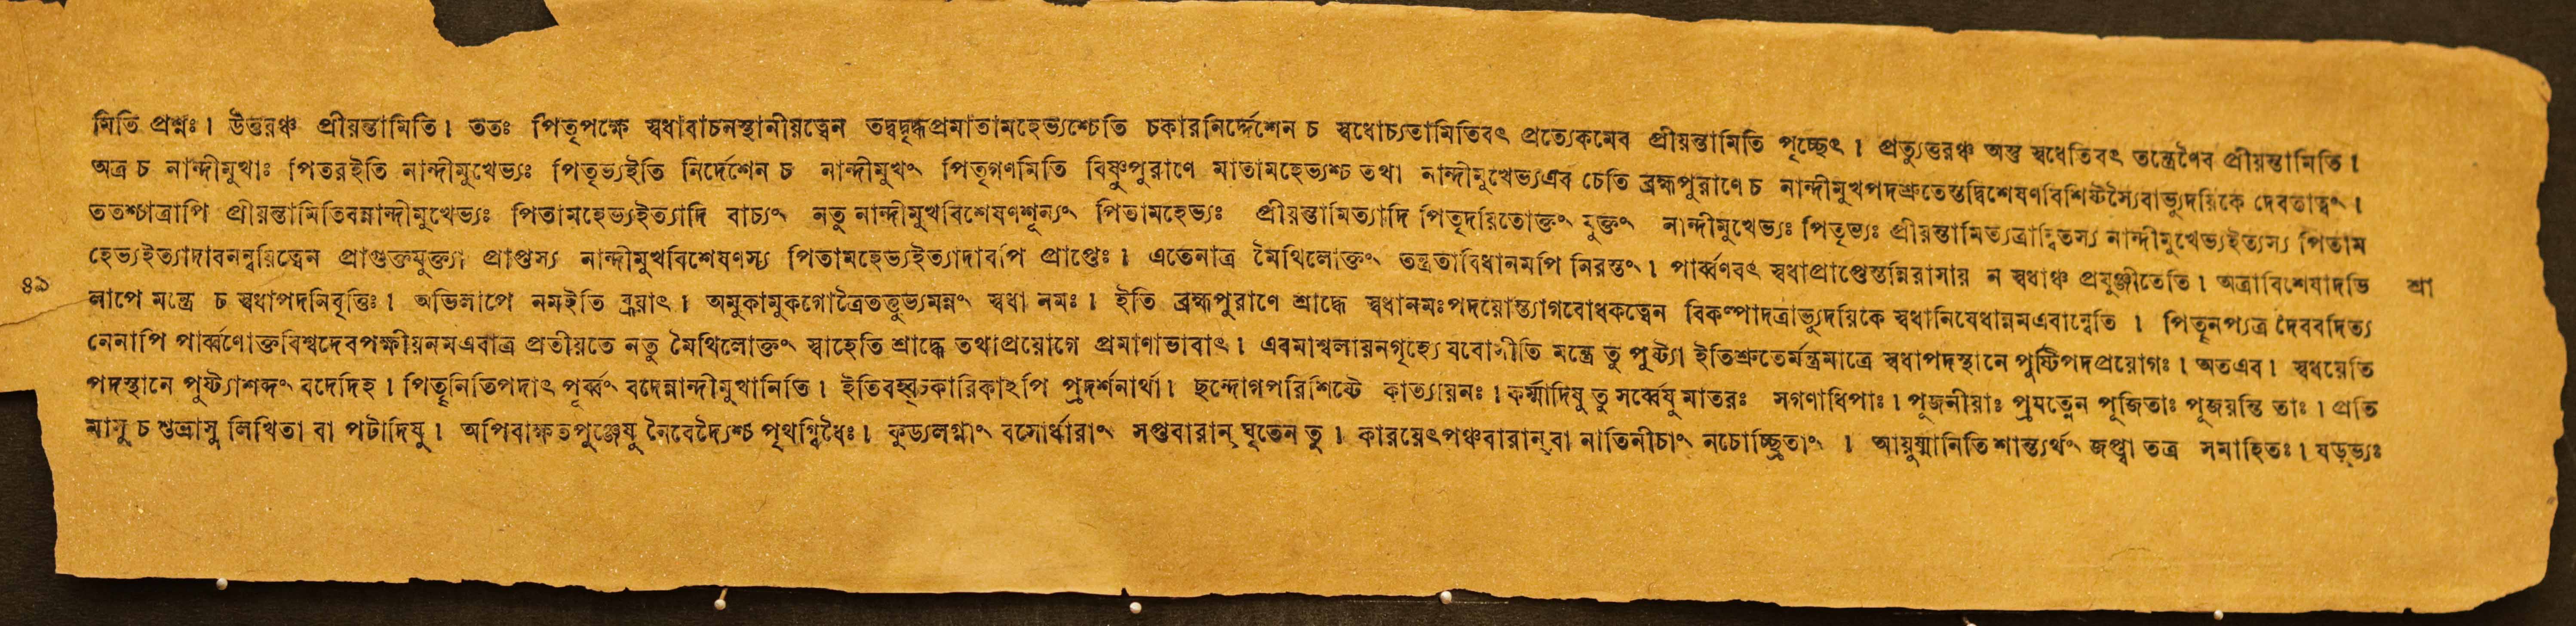 মিতি প্রশ্নঃ। উত্তরঞ্চ প্রীয়ন্তামিতি। ততঃ পিতৃপক্ষে স্বধাবাচনস্থানীয়ত্বেন তদ্বদ্বৃদ্ধপ্রমাতামহেভ্যশ্চেতি চকারনির্দ্দেশেন চ স্বধোচ্যতামিতিবৎ প্রত্যেকমেব প্রীয়ন্তামিতি পৃচ্ছেৎ। প্রত্যুত্তরঞ্চ অস্তু স্বধেতিবৎ তন্ত্রেণৈব প্রীয়ন্তামিতি।
অত্র চ নান্দীমুখাঃ পিতরইতি নান্দীমুখেভ্যঃ পিতৃভ্যইতি নির্দেশেন চ নান্দীমুখং পিতৃগণমিতি বিষ্ণুপুরাণে মাতামহেভ্যশ্চ তথা নান্দীমুখেভ্যএব চেতি ব্রহ্মপুরাণে চ নান্দীমুখপদশ্রুতেস্তদ্বিশেষণবিশিষ্টস্যৈবাভ্যুদয়িকে দেবতাত্বং।
ততশ্চাত্রাপি প্রীয়ন্তামিতিবন্নান্দীমুখেভ্যঃ পিতামহেভ্যইত্যাদি বাচ্যং নতু নান্দীমুখবিশেষণশূন্যং পিতামহেভ্যঃ প্রীয়ন্তামিত্যাদি পিতৃদয়িতোক্তং যুক্তং নান্দীমুখেভ্যঃ পিতৃভ্যঃ প্রীয়ন্তামিত্যত্রান্বিতস্য নান্দীমুখেভ্যইত্যস্য পিতাম
হেভ্যইত্যাদাবনন্বয়িত্বেন প্রাগুক্তযুক্ত্যা প্রাপ্তস্য নান্দীমুখবিশেষণস্য পিতামহেভ্যইত্যাদাবপি প্রাপ্তেঃ। এতেনাত্র মৈথিলোক্তং তন্ত্রতাবিধানমপি নিরস্তং। পার্ব্বণবৎ স্বধাপ্রাপ্তেস্তন্নিরাসায় ন স্বধাঞ্চ প্রযুঞ্জীতেতি। অত্রাবিশেষাদভি
৪৯ লাপে মন্ত্রে চ স্বধাপদনিবৃত্তিঃ। অভিলাপে নমইতি ব্রূয়াৎ। অমুকামুকগোত্রৈতত্তুভ্যমন্নং স্বধা নমঃ। ইতি ব্রহ্মপুরাণে শ্রাদ্ধে স্বধানমঃপদয়োস্ত্যাগবোধকত্বেন বিকল্পাদত্রাভ্যুদয়িকে স্বধানিষেধান্নমএবান্বেতি। পিতৄনপ্যত্র দৈববদিত্য শ্রা
নেনাপি পার্ব্বণোক্তবিশ্বদেবপক্ষীয়নমএবাত্র প্রতীয়তে নতু মৈথিলোক্তং স্বাহেতি শ্রাদ্ধে তথাপ্রয়োগে প্রমাণাভাবাৎ। এবমাশ্বলায়নগৃহ্যে যবোসীতি মন্ত্রে তু পুষ্ট্যা ইতিশ্রুতের্মন্ত্রমাত্রে স্বধাপদস্থানে পুষ্টিপদপ্রয়োগঃ। অতএব। স্বধয়েতি
পদস্থানে পুষ্ট্যাশব্দং বদেদিহ। পিতৄনিতিপদাৎ পূর্ব্বং বদেন্নান্দীমুখানিতি। ইতিবহ্বৃচকারিকাঽপি প্রদর্শনার্থা। ছন্দোগপরিশিষ্টে কাত্যায়নঃ। কর্ম্মাদিষু তু সর্ব্বেষু মাতরঃ সগণাধিপাঃ। পূজনীয়াঃ প্রযত্নেন পূজিতাঃ পূজয়ন্তি তাঃ। প্রতি
মাসু চ শুভ্রাসু লিখিতা বা পটাদিষু। অপিবাক্ষতপুঞ্জেষু নৈবেদ্যৈশ্চ পৃথগ্বিধৈঃ। কুড্যলগ্নাং বসোর্ধারাং সপ্তবারান্ ঘৃতেন তু। কারয়েৎপঞ্চবারান্ বা নাতিনীচাং নচোচ্ছ্রিতাং। আয়ুষ্মানিতি শান্ত্যর্থং জপ্ত্বা তত্র সমাহিতঃ। ষড়্ভ্যঃ